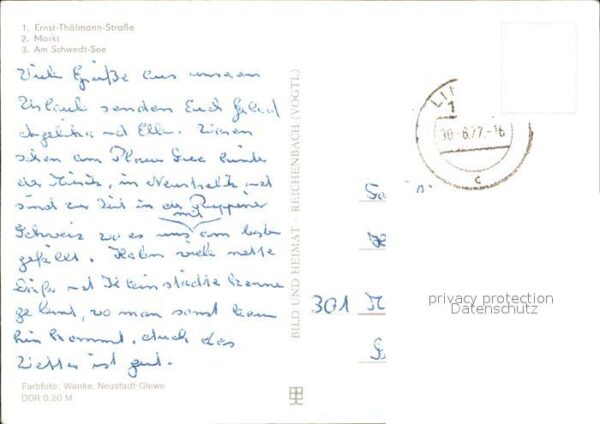 1. Ernst-Thälmann-Straße
2. Markt
3. Am Schwedt-See
Viele Grüße aus unserem
Urlaub senden Euch
und Ella. Waren
schon am Plauer See
in und
sind zur Zeit in der Ruppiner
mit
Schweiz wo es uns am besten
gefällt. Haben viele nette
und Kleinstädte kennen
gelernt, wo man sonst kaum
hin kommt, auch das
Wetter ist gut.
Farbfoto: Wanke, Neustadt-Glewe
DDR 0,20 M
BILD UND HEIMAT · REICHENBACH (VOGTL)
30.-6.77.-16
c
301
privacy protection
Datenschutz